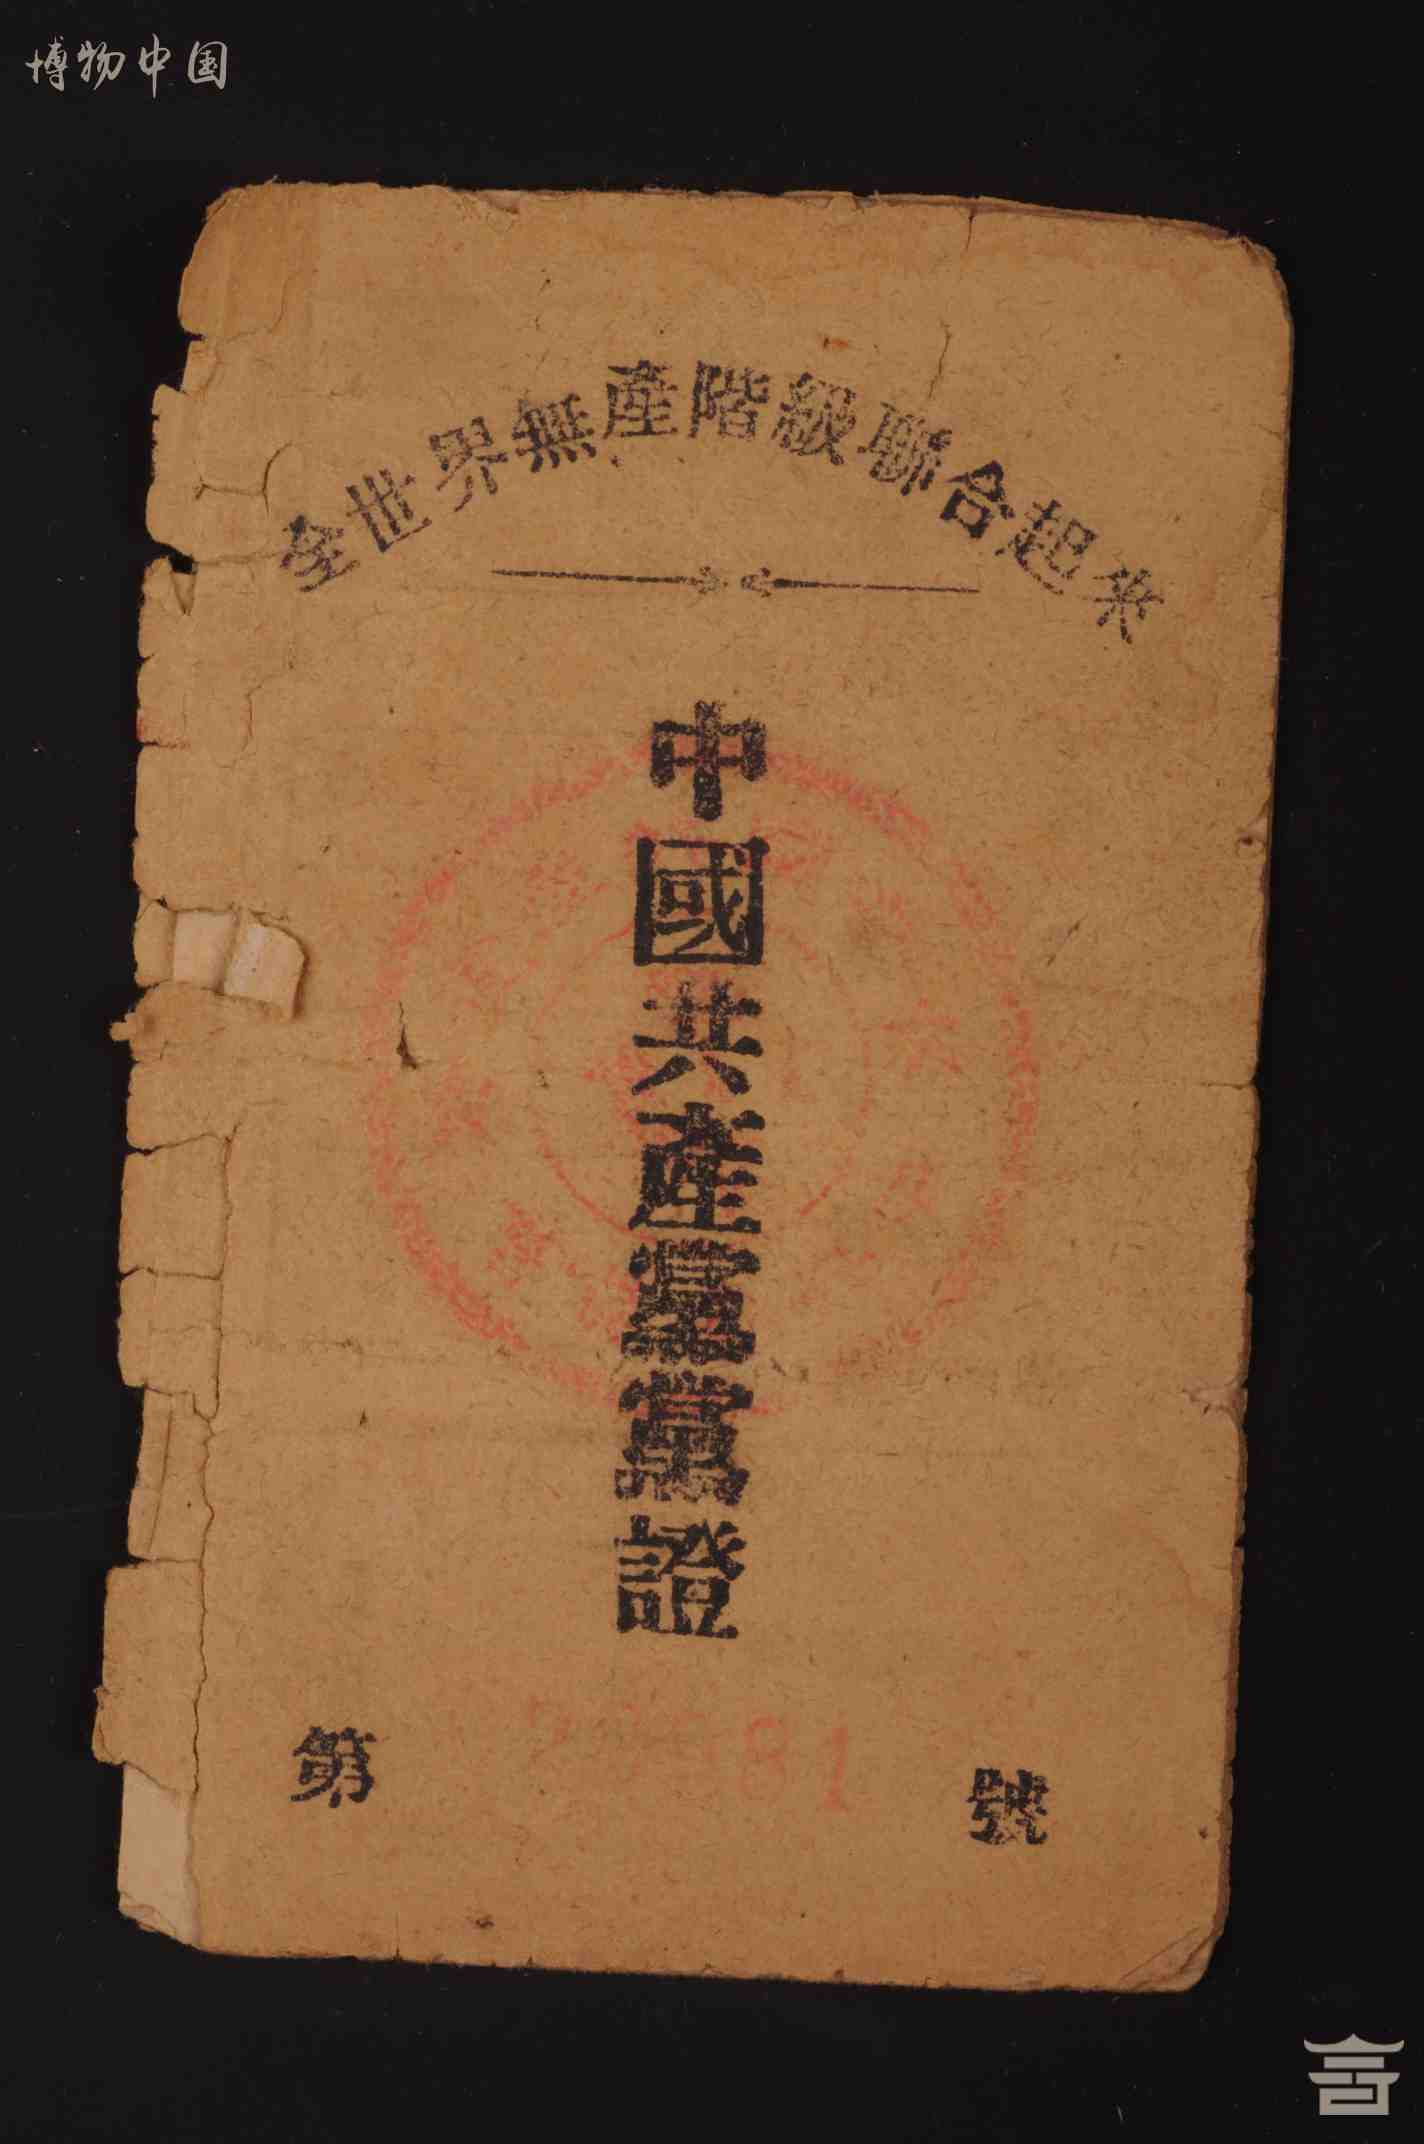 博物中国
全世界無產階級聯合起來
中國共產黨黨證
第 號